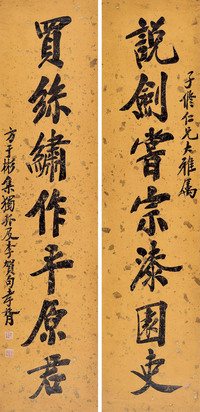 說劍嘗宗漆園吏
子修仁兄大雅屬
買絲繡作平原君
方于彬集獨孤及李賀句孝胥